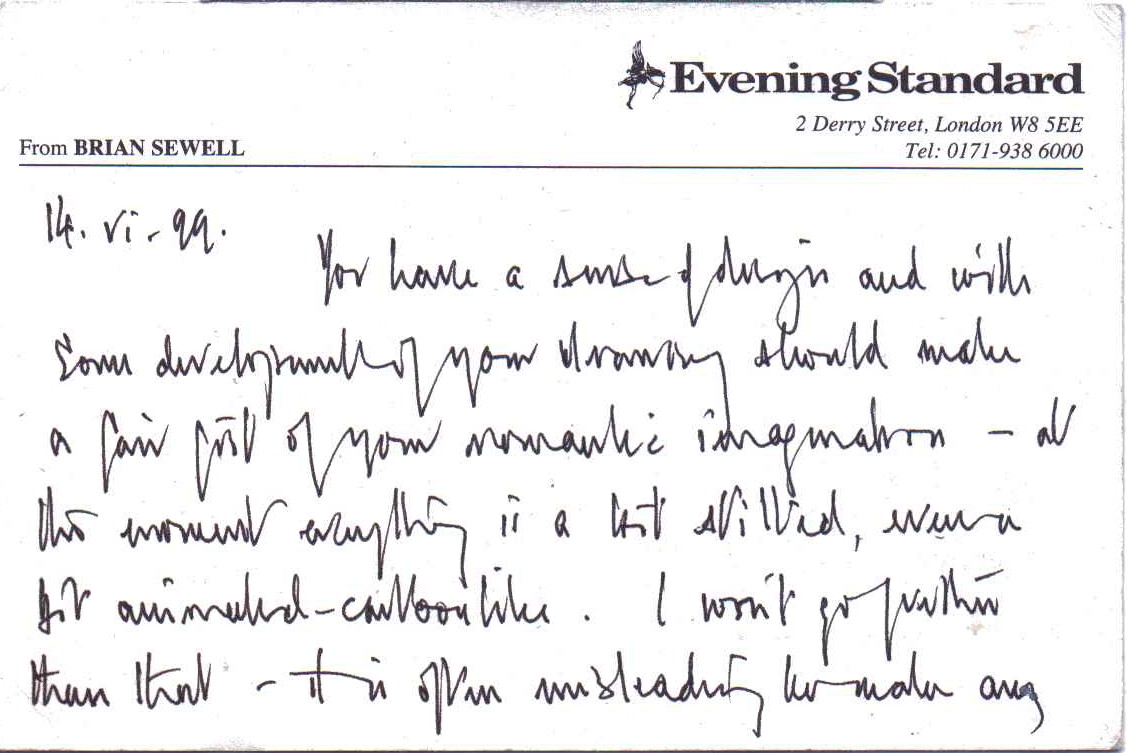 Evening Standard
2 Derry Street, London W8 5EE
From BRIAN SEWELL
Tel: 0171-938 6000
14. vi. 99.
You have a sense of design and with
some development of your drawing should make
a fair fist of your romantic imagination - at
this moment everything is a bit stilted, even a
bit animated-cartoon like. I won't go further
than that - it is often misleading to make any